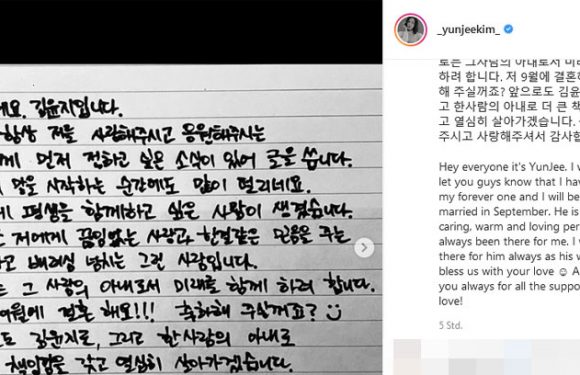 요. 김윤지입니다.
항상 저를 사랑해주시고 응원해주시는
께 먼저 전하고 싶은 소식이 있어 글을 씁니다.
말을 시작하는 순간에도 많이 떨리네요.
게 평생을 함께하고 싶은 사람이 생겼습니다.
저에게 끊임없는 사랑과 한결같은 믿음을 주는
고 배려심 넘치는 그런 사람입니다.
는 그 사람의 아내로서 미래를 함께 하려 합니다.
9월에 결혼 해요!!! 축하해 주실꺼죠? ☺
도 김윤지로, 그리고 한사람의 아내로
책임감을 갖고 열심히 살아가겠습니다.
_yunjeekim_
로는 그사람의 아내로서 미래
하려 합니다. 저 9월에 결혼
해 주실꺼죠? 앞으로도 김윤
고 한사람의 아내로 더 큰 책
고 열심히 살아가겠습니다.
주시고 사랑해주셔서 감사합
Hey everyone it's YunJee. I w
let you guys know that I have
my forever one and I will be
married in September. He is
caring, warm and loving per
always been there for me. I w
there for him always as his w
bless us with your love ☺ A
you always for all the suppo
love!
5 Std.